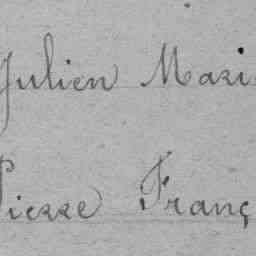 Julien Mari
Pierre Franç